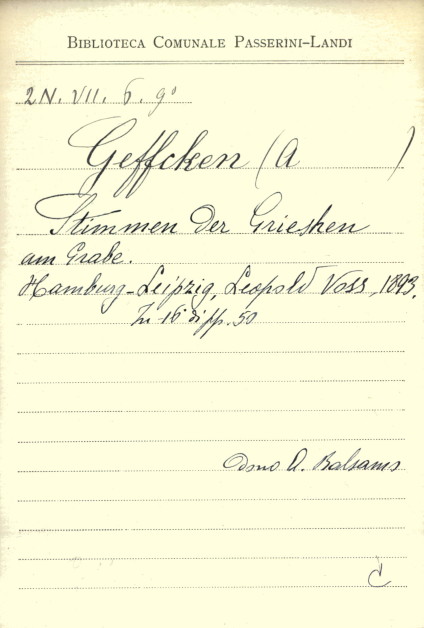 BIBLIOTECA COMUNALE PASSERINI-LANDI
2N. VII. 6. 9º
Geffcken (A )
Stimmen der Grieshen
am Grabe.
Hamburg-Leipzig, Leopold Voss, 1893.
In 16 di pp. 50
Dono A. Balsamo
C